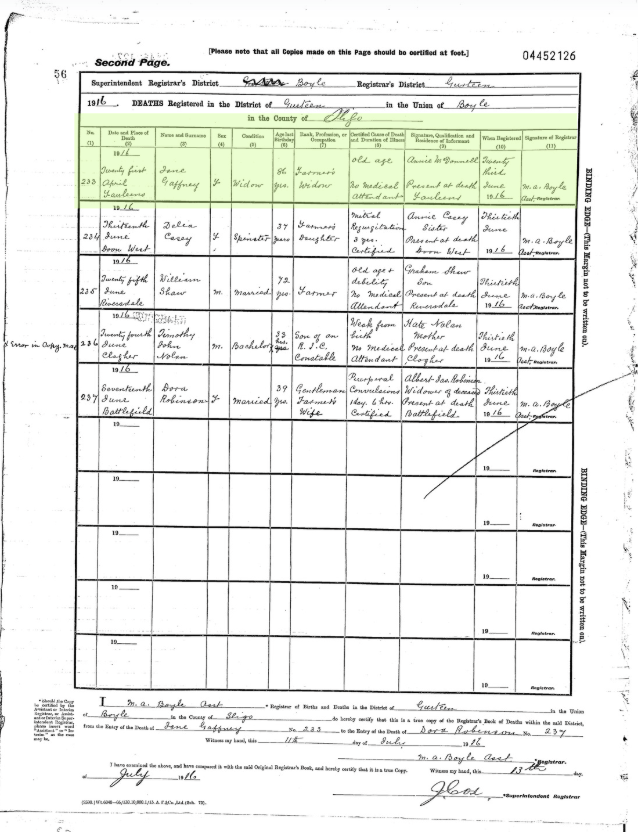 [Please note that all Copies made on this Page should be certified at foot.]
04452126
Second Page.
56
Superintendent Registrar's District Boyle Registrar's District Gurteen
1916. DEATHS Registered in the District of Gurteen in the Union of Boyle
in the County of Sligo
No. (1) Date and Place of Death (2) Name and Surname (3) Sex (4) Condition (5) Age last Birthday (6) Rank, Profession, or Occupation (7) Certified Cause of Death and Duration of Illness (8) Signature, Qualification and Residence of Informant (9) When Registered (10) Signature of Registrar (11)
233 1916 Twenty first April Jane Gaffney F Widow 86 yrs. Farmer's Widow old age No Medical Attendant Annie McDonnell Present at death Twenty third June 1916 M. A. Boyle Asst. Registrar.
234 1916 Thirteenth June Doon West Delia Casey F Spinster 37 years Farmer's Daughter Mitral Regurgitation 2 yrs. Certified Annie Casey Sister Present at death Doon West Thirtieth June 1916 M. A. Boyle Asst. Registrar.
235 1916 Twenty fifth June Riversdale William Shaw M. Married 72 yrs Farmer old age & debility No Medical Attendant Graham Shaw Son Present at death Riversdale Thirtieth June 1916 M. A. Boyle Asst. Registrar.
Error in Copy. MAB
236 1916 Twenty fourth June Clogher Timothy John Nolan M. Bachelor 33 hrs. Son of an R.I.C. Constable Weak from birth No Medical Attendant Kate Nolan Mother Present at death Clogher Thirtieth June 1916 M. A. Boyle Asst. Registrar.
237 1916 Seventeenth June Battlefield Dora Robinson F Married 39 yrs. Gentleman Farmer's Wife Puerperal Convulsions 1 day. 6 hrs. Certified Albert Jas Robinson Widower of deceased Present at death Battlefield Thirtieth June 1916 M. A. Boyle Asst. Registrar.
19 19 Registrar.
19 19 Registrar.
19 19 Registrar.
19 19 Registrar.
19 19 Registrar.
BINDING EDGE—(This Margin not to be written on)
BINDING EDGE—(This Margin not to be written on)
* Should the Copy be certified by the Assistant or Interim Registrar, or Assistant or Interim Superintendent Registrar, please insert word "Assistant" or "Interim" as the case may be.
I M. A. Boyle Asst * Registrar of Births and Deaths in the District of Gurteen in the Union
of Boyle in the County of Sligo do hereby certify that this is a true copy of the Registrar's Book of Deaths within the said District,
from the Entry of the Death of Jane Gaffney No. 233 to the Entry of the Death of Dora Robinson No. 237
Witness my hand, this 11th day of July 1916
M. A. Boyle Asst *Registrar.
I have examined the above, and have compared it with the said Original Registrar's Book, and hereby certify that it is a true Copy. Witness my hand, this 13th day
of July 1916
*Superintendent Registrar